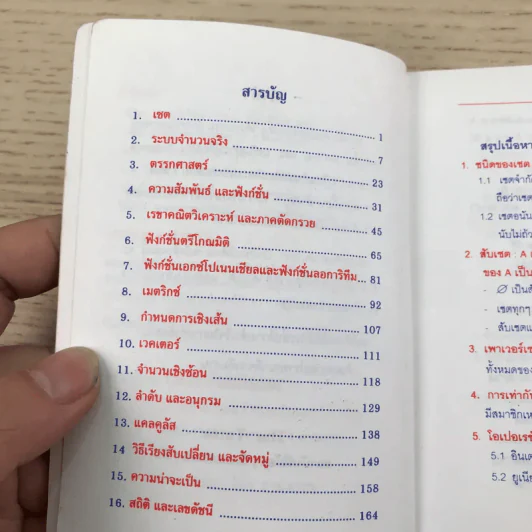 สารบัญ
1. เซต ........ 1
2. ระบบจำนวนจริง ........ 7
3. ตรรกศาสตร์ ........ 23
4. ความสัมพันธ์ และฟังก์ชั่น ........ 31
5. เรขาคณิตวิเคราะห์ และภาคตัดกรวย ........ 45
6. ฟังก์ชั่นตรีโกณมิติ ........ 65
7. ฟังก์ชั่นเอกซ์โปเนนเชียลและฟังก์ชั่นลอการิทึม... 81
8. เมตริกซ์ ........ 92
9. กำหนดการเชิงเส้น ........ 107
10. เวคเตอร์ ........ 111
11. จำนวนเชิงซ้อน ........ 118
12. ลำดับ และอนุกรม ........ 129
13. แคลคูลัส ........ 138
14 วิธีเรียงสับเปลี่ยน และจัดหมู่ ........ 149
15. ความน่าจะเป็น ........ 158
16. สถิติ และเลขดัชนี ........ 164
สรุปเนื้อหา
1. ชนิดของเซต
1.1 เซตจำกั
ถือว่าเซต
1.2 เซตอนัน
นับไม่ถ้ว
2. สับเซต : A
ของ A เป็น
- ∅ เป็นสั
- เซตทุกๆ
- สับเซตแ
3. เพาเวอร์เซ
ทั้งหมดของ
4. การเท่ากั
มีสมาชิกเห
5. โอเปอเรชั
5.1 อินเต
5.2 ยูเนีย